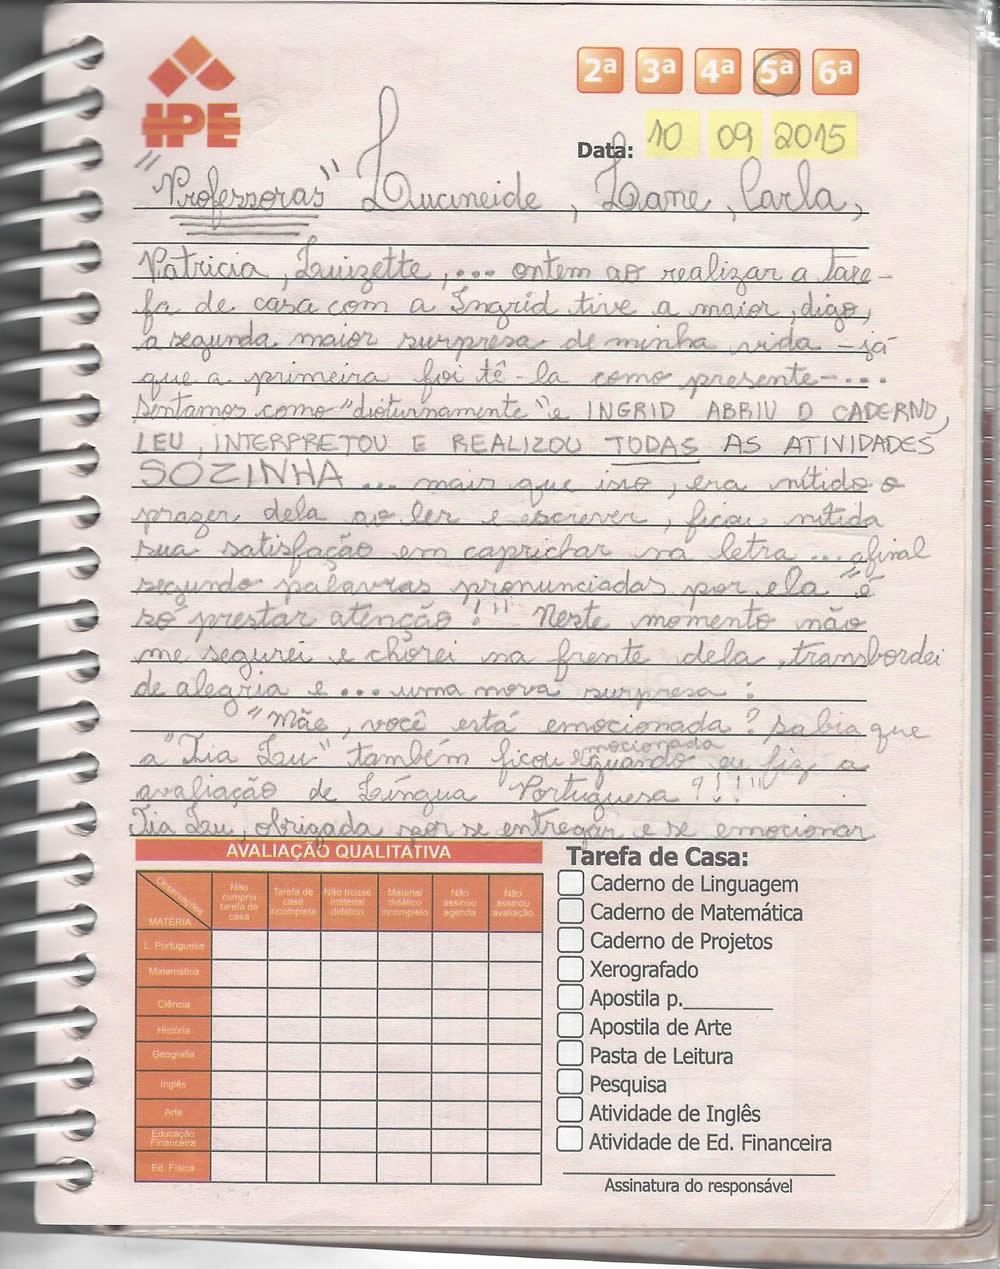 IPE
2ª 3ª 4ª 5ª 6ª
Data: 10 09 2015
"Professoras" Lucineide, Liane, Carla,
Patricia, Luizette, ... ontem ao realizar a tare-
fa de casa com a Ingrid tive a maior, digo,
a segunda maior surpresa de minha vida - já
que a primeira foi tê-la como presente - ...
Sentamos como "dioturnamente" e INGRID ABRIU O CADERNO,
LEU, INTERPRETOU E REALIZOU TODAS AS ATIVIDADES
SOZINHA ... mais que isso, era nítido o
prazer dela ao ler e escrever, ficou nítida
sua satisfação em caprichar na letra ... afinal
segundo palavras pronunciadas por ela "é
só prestar atenção!" Neste momento não
me segurei e chorei na frente dela, transbordei
de alegria e ... uma nova surpresa:
"Mãe, você está emocionada? Sabia que
a "Tia Lu" também ficou emocionada quando eu fiz a
avaliação de Língua Portuguesa?!!!"
Tia Lu, obrigada por se entregar e se emocionar
AVALIAÇÃO QUALITATIVA
Observações
MATÉRIA
Não cumpriu tarefa de casa
Tarefa de casa incompleta
Não trouxe material didático
Material didático incompleto
Não assinou agenda
Não assinou avaliação
L. Portuguesa
Matemática
Ciência
História
Geografia
Inglês
Arte
Educação Financeira
Ed. Física
Tarefa de Casa:
Caderno de Linguagem
Caderno de Matemática
Caderno de Projetos
Xerografado
Apostila p.________
Apostila de Arte
Pasta de Leitura
Pesquisa
Atividade de Inglês
Atividade de Ed. Financeira
Assinatura do responsável